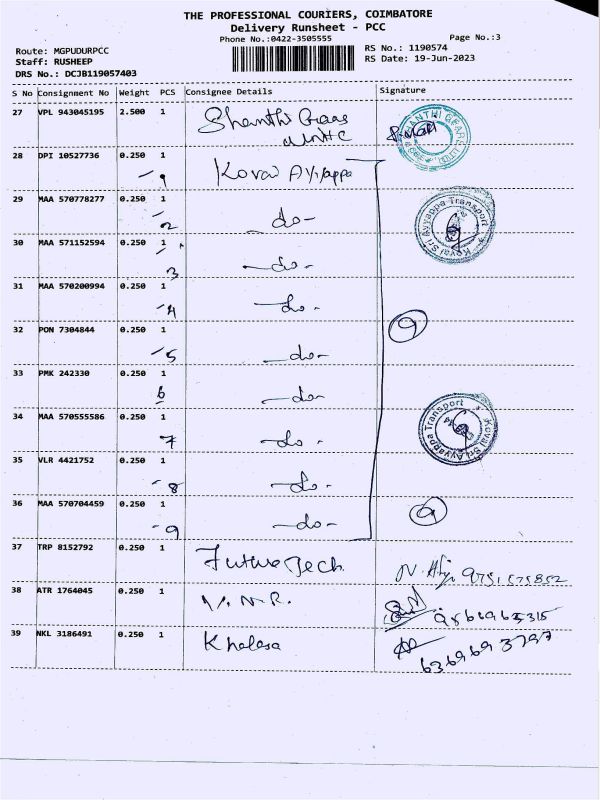 THE PROFESSIONAL COURIERS, COIMBATORE
Delivery Runsheet - PCC
Phone No.:0422-3505555
Page No.:3
Route: MGPUDURPCC
RS No.: 1190574
Staff: RUSHEEP
RS Date: 19-Jun-2023
DRS No.: DCJB119057403
S No Consignment No Weight PCS Consignee Details Signature
27 VPL 943045195 2.500 1 Shanthi Gears
Unit C
28 DPI 10527736 0.250 1 Kovai Ayyappa
-1
29 MAA 570778277 0.250 1 -do-
-2
Kovai Sri Ayyappa Transport
30 MAA 571152594 0.250 1 -do-
-3
31 MAA 570200994 0.250 1 -do-
-4
32 PON 7304844 0.250 1 -do-
-5
9
33 PMK 242330 0.250 1 -do-
6
34 MAA 570555586 0.250 1 -do-
7
Kovai Sri Ayyappa Transport
35 VLR 4421752 0.250 1 -do-
-8
36 MAA 570704459 0.250 1 -do-
-9
9
37 TRP 8152792 0.250 1 Future Tech
38 ATR 1764045 0.250 1 V.N.R.
39 NKL 3186491 0.250 1 Khalesa
6369693797